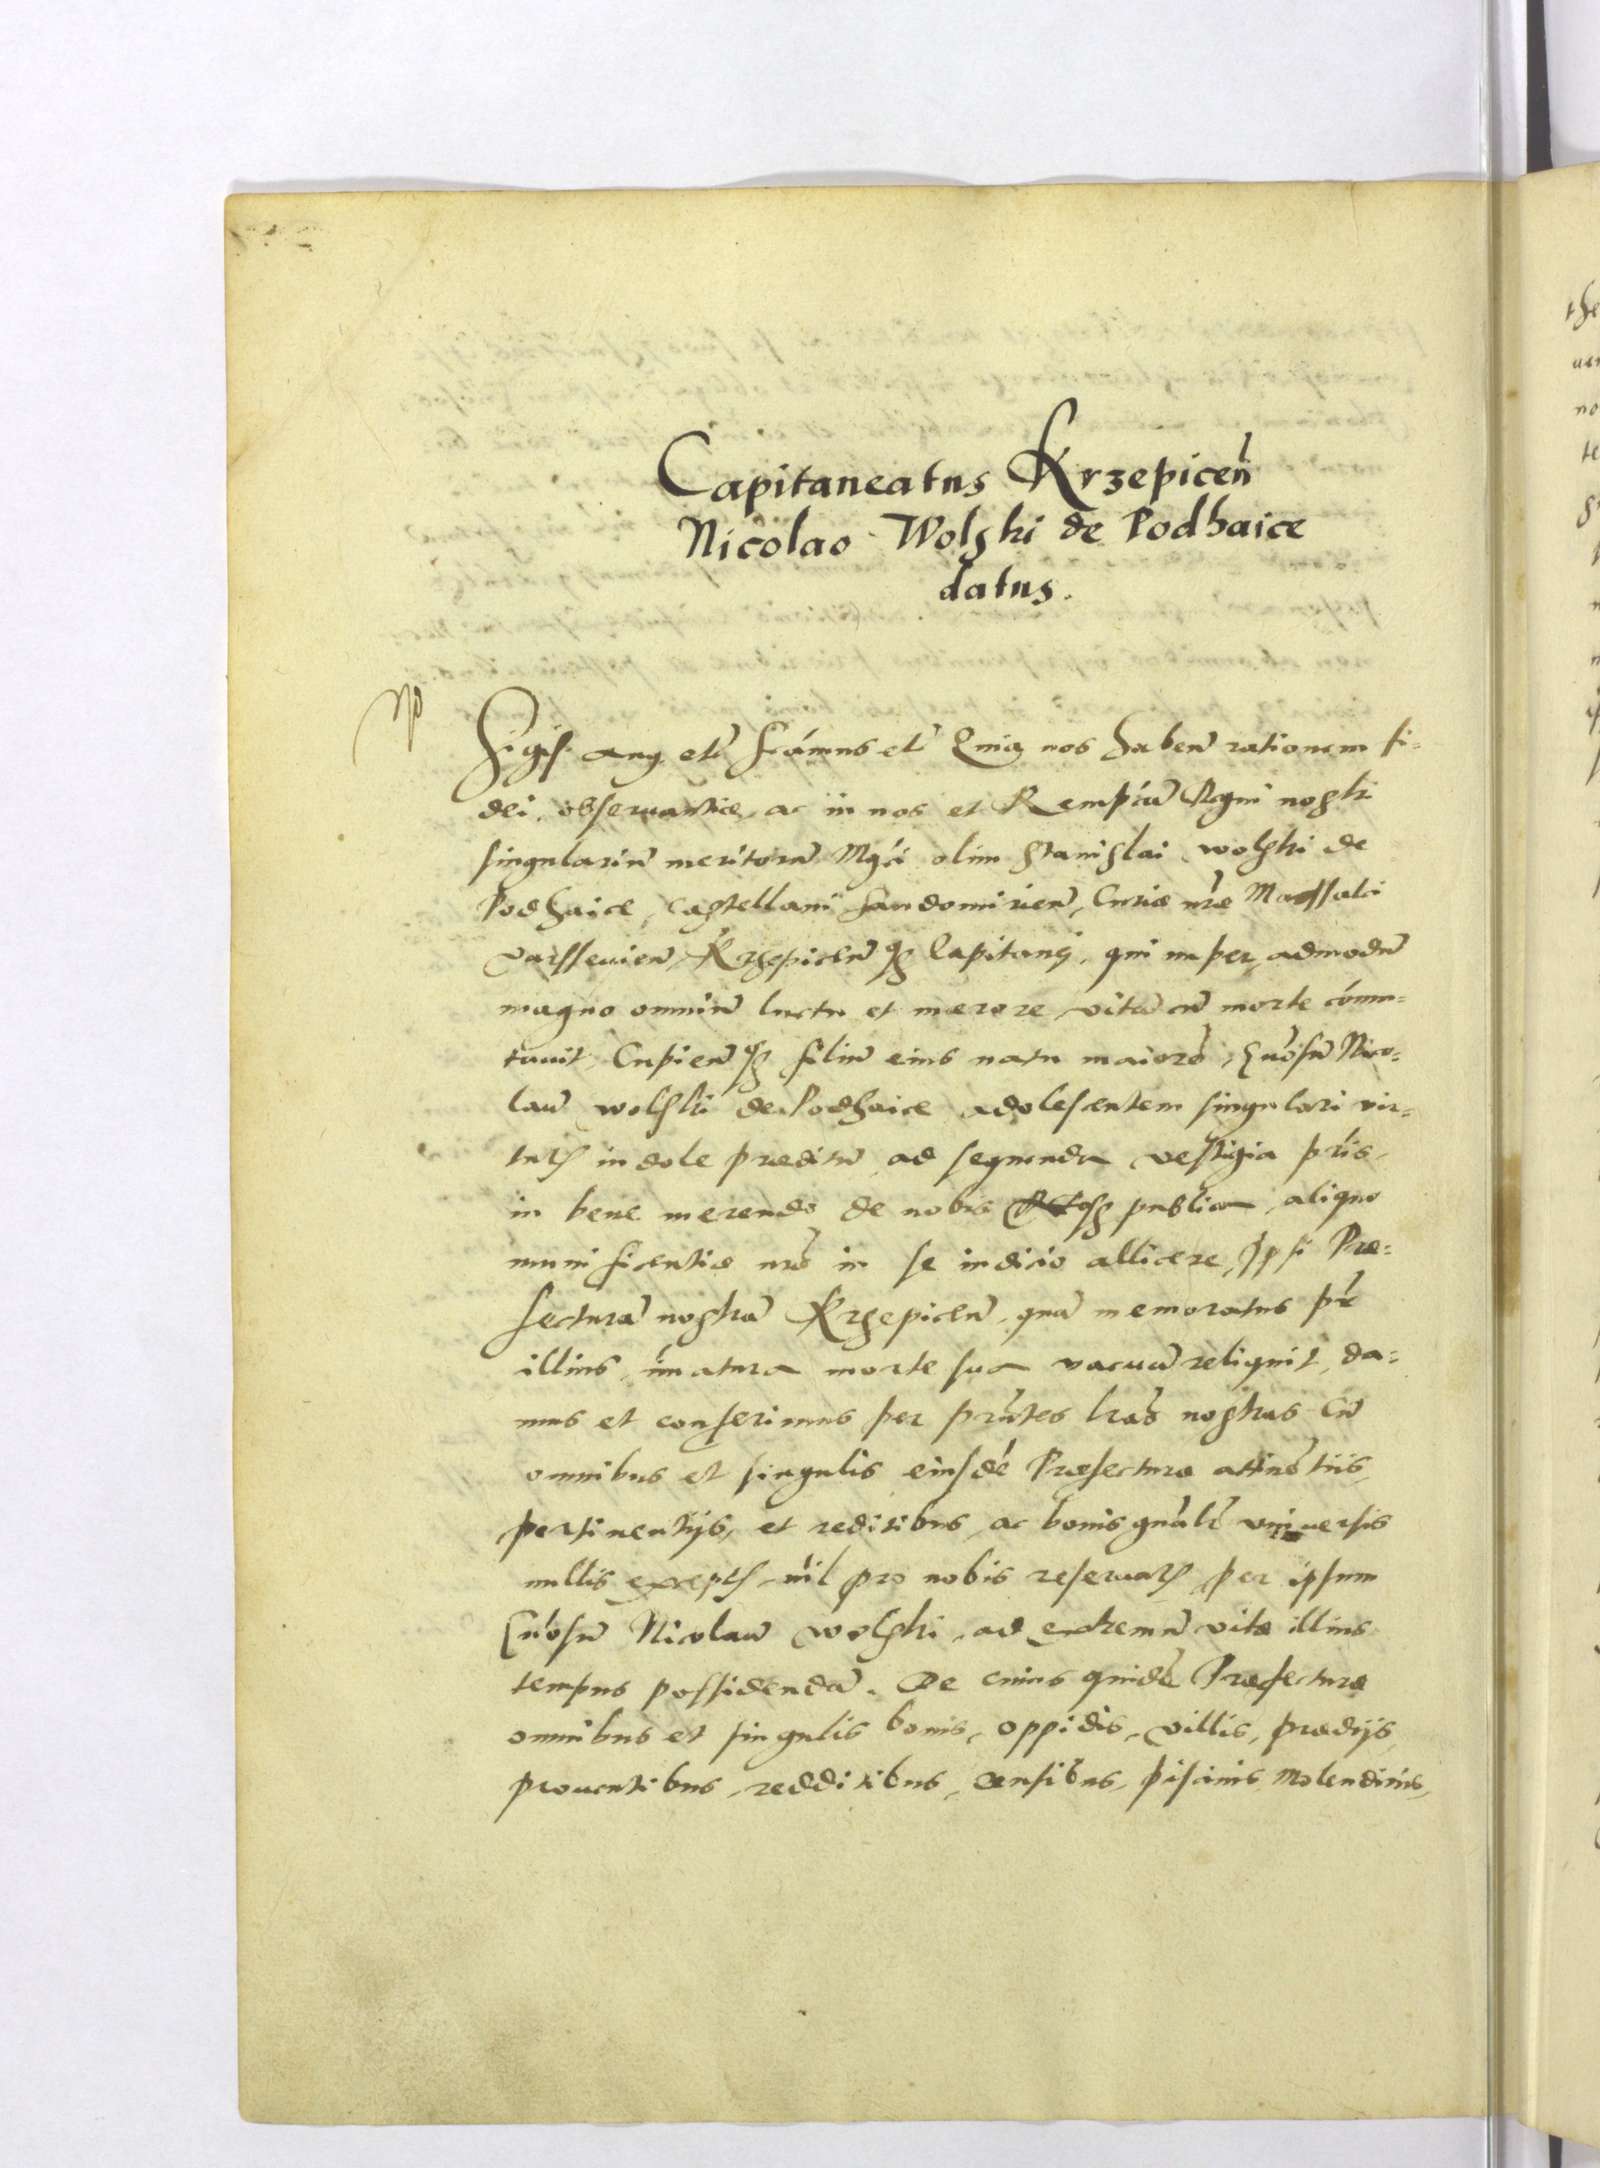 Capitaneatus Krzepiceñ
Nicolao Wolski de Podhaice
datus.
Sigis. Aug. etc̃ Scim̃us etc̃ Quia nos habeñ rationem fi=
dei, observantiæ, ac in nos et Rempicã Regni nostri
singulariũ meritorũ Mgci olim Stanislai Wolski de
Podhaice, Castellani Sandomirieñ, Curiæ nr̃æ Marssalci
Varssevieñ, Krzepiceñq3 Capitanej, qui nuper, admodũ
magno omniũ luctu et mærore vitã cũ morte cõmu=
tavit, Cupieñq3 filiũ eius natu maiorẽ, Gñosũ Nico=
laũ Wolski de Podhaice adolescentem singulari vir=
tutis indole præditũ ad sequenda vestigia pr̃is,
in bene merendo de nobis publica, aliquo
munificentiæ nr̃æ in se indicio allicere, Ipsi Præ=
fecturã nostrã Krzepiceñ, quã memoratus pr̃
illius, im̃atura morte sua vacuã reliquit, da=
mus et conferimus per pr̃ntes lr̃as nostras Cũ
omnibus et singulis eiusdẽ Præfecturæ attinẽtiis,
pertinentijs, et reditibus, ac bonis gnãlr̃ universis
nullis exceptis, nil pro nobis reservatis, per ipsum
Gñosũ Nicolaũ Wolski, ad extremũ vitæ illius
tempus possidendã. De cuius quidẽ Præfecturæ
omnibus et singulis bonis, oppidis, villis, prædijs,
proventibus, redditibus, censibus, piscinis, Molendinis,